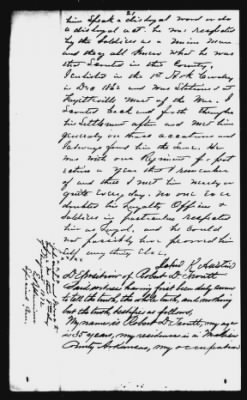 21
him speak a disloyal word or do
a disloyal act. he was respected
by the Soldiers as a Union man
and they all knew what he was
that Served in this County,
I enlisted in the 1st Ark Cavalry
in Dec 1862 and was stationed at
Fayetteville most of the War. I
Scouted back and forth through
his Settlement often and met him
generally on those occasions and
I always found him the same. He
was with our Regiment for part
entire a year that I remember
of and then I met him nearly or
quite every day. No one Ever
doubted his loyalty Officers &
Soldiers in particular respected
him as loyal, and he could
not possibly have proved him
self any thing Else.
John R. Austin
Deposition of Robert D.
Said witness having first been duly sworn
to tell the truth, the whole truth, and nothing
but the truth, testifies as follows,
My name is Robert D. my age
is 35 years, my residence is in
County Arkansas, my occupation